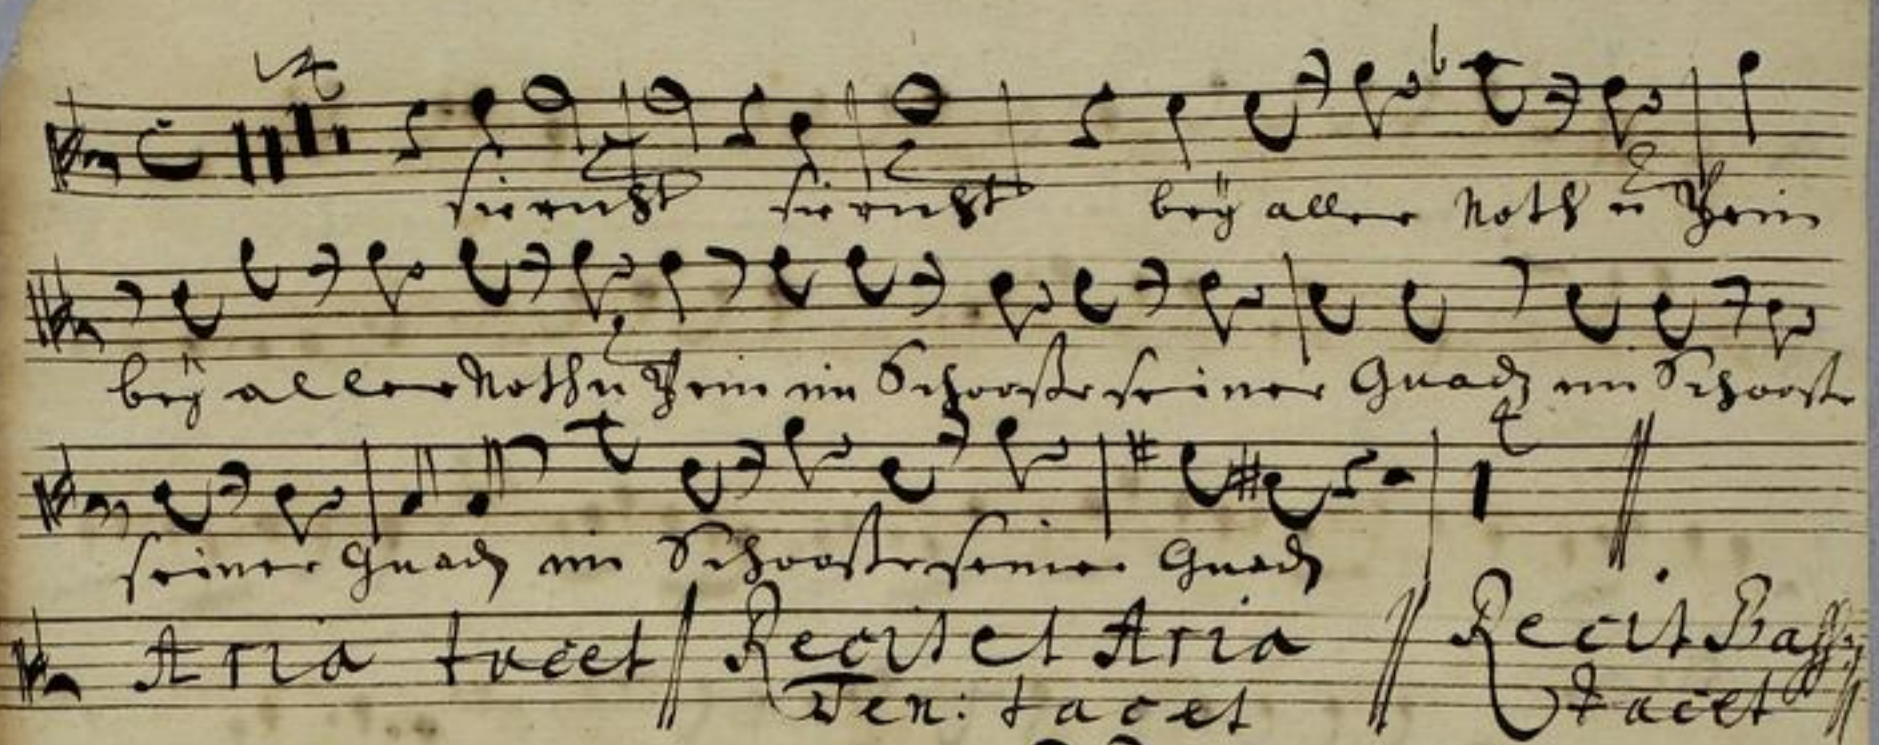 sie ruht sie ruht beÿ aller Noth u Pein
beÿ aller Noth u Pein im Schooße seiner Gnad im Schooße
seiner Gnad im Schooße seiner Gnad
Aria tacet Recit et Aria Recit Bass
Ten: tacet tacet